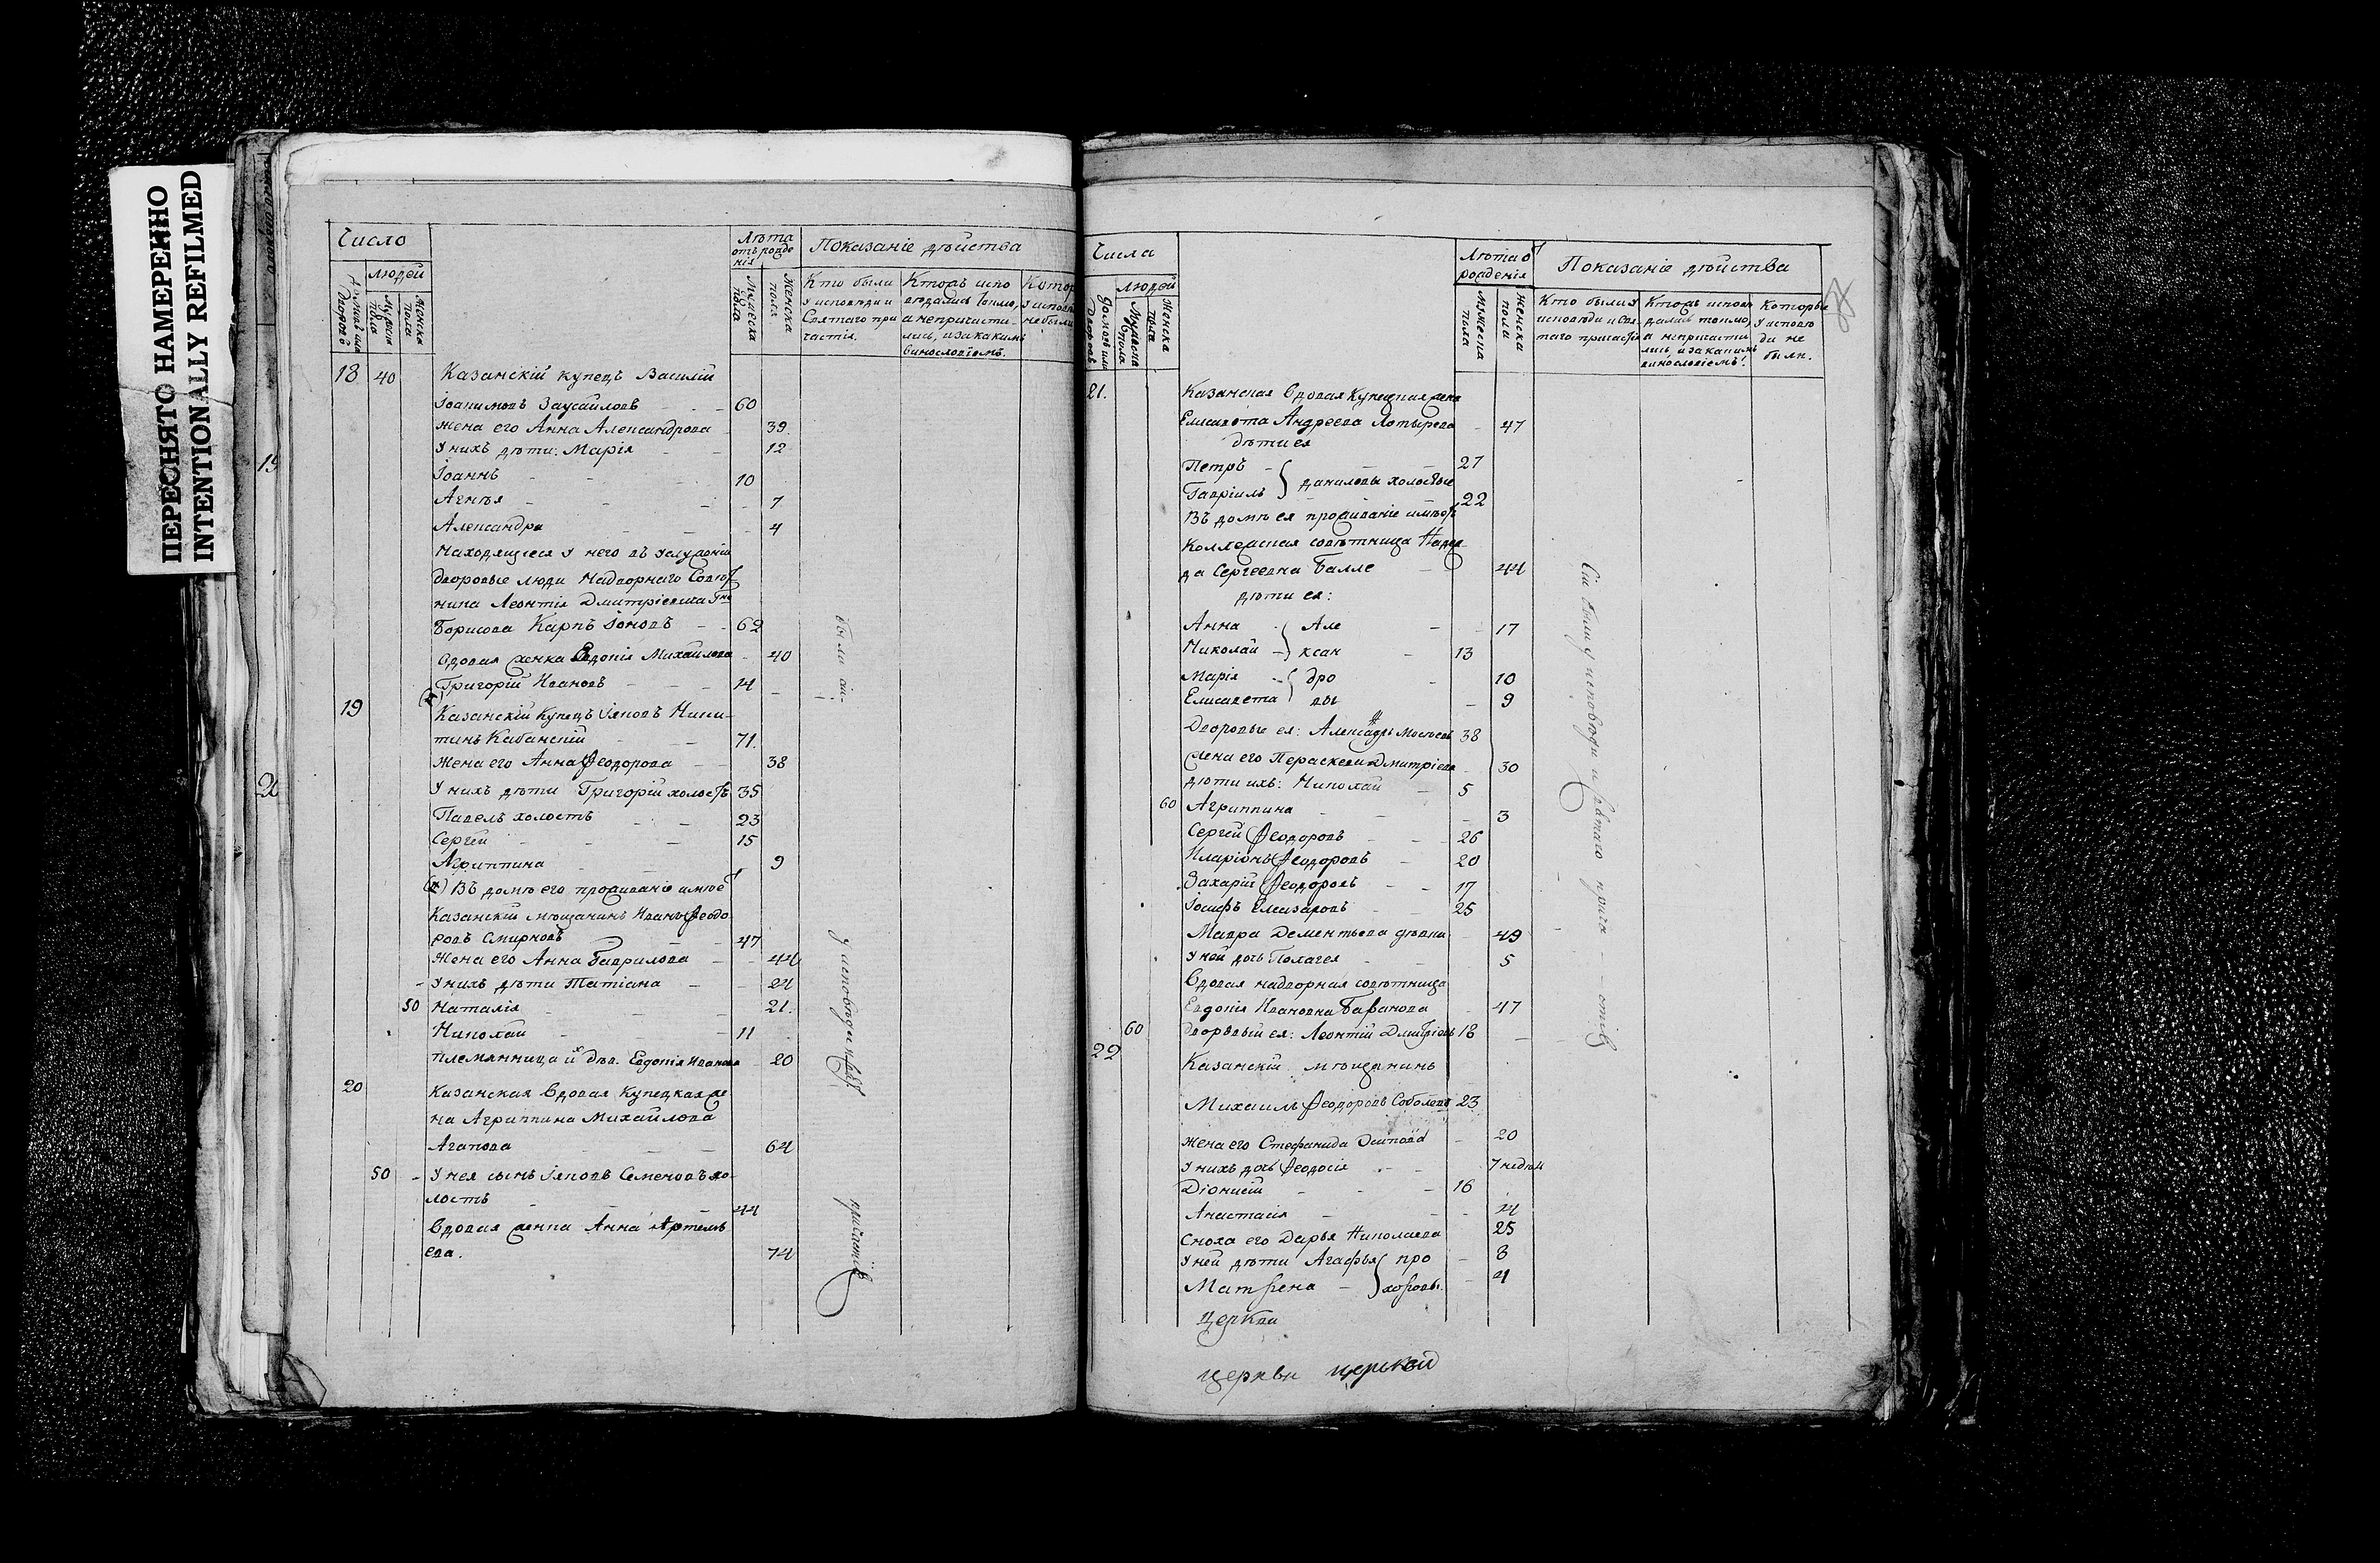 ПЕРЕСНЯТО НАМЕРЕННО
INTENTIONALLY REFILMED
19
20
Число
людей
Лѣта
отъ рожде
нія
Показаніе дѣйства
Домовъ или
Дворовъ
Мужеска
пола
Женска
пола
Мужеска
пола
Женска
пола
Кто были
у исповѣди и
Святаго при
частія.
Кто испо
вѣдались токмо,
а непричасти-
лись, и за какимъ
винословіемъ.
Котор
у исповѣ
не были
18 40 Казанскій купецъ Василій
Іоакимовъ Заусайловъ 60
жена его Анна Александрова 39
У нихъ дѣти: Марія 12
Іоаннъ 10
Агнія 7
Александра 4
Находящіеся у него въ услуженіи
дворовые люди Надворнаго Совѣт
ника Леонтія Дмитріевича
Борисова Карпъ Іоновъ 62
Вдовая женка Евдокія Михайлова 40
Григорій Ивановъ 14
19 Казанскій Купецъ Іяковъ Ники-
тинъ Кабанскій 71.
Жена его Анна Ѳеодорова 38
У нихъ дѣти Григорій холостъ 35
Павелъ холостъ 23
Сергѣй 15
Агриппина 9
Въ домѣ его проживаніе имѣе
Казанскій мѣщанинъ Иванъ Ѳеодо
ровъ Смирновъ 47
Жена его Анна Гаврилова 44
У нихъ дѣти Татіана 24
50 Наталія 21.
Николай 11
племянница дѣв. Евдокія Иванова 20
20 Казанская Вдовая Купецкая же
на Агриппина Михайлова
Агапова 64
50 У нея сынъ Іяковъ Семеновъ хо-
лостъ 44
Вдовая женка Анна Артемь
ева. 74
были сіи
у исповѣди и
причастія
Числа
людей
Лѣта о
рожденія
Показаніе дѣйства
Домовъ или
Дворовъ
Мужеска
пола
Женска
пола
Мужеска
пола
Женска
пола
Кто были у
исповѣди и Свя
таго причастія
Кто исповѣ
дались токмо,
а непричасти
лись, и за какимъ
винословіемъ.
Которые
у исповѣ
ди не
были.
21. Казанская Вдовая Купецкая жена
Елисавета Андреева Котырева 47
дѣти ея
Петръ 27
Гавріилъ Даниловы холостые 22
Въ домѣ ея проживаніе имѣетъ
Коллежская совѣтница Надеж
да Сергеевна Балле 44
дѣти ея:
Анна Але 17
Николай ксан 13
Марія дро 10
Елисавета вы 9
Дворовые ея: Александръ 38
жена его Параскева Дмитріева 30
дѣти ихъ: Николай 5
60 Агриппина 3
Сергѣй Ѳеодоровъ 26
Иларіонъ Ѳеодоровъ 20
Захарій Ѳеодоровъ 17
Іосифъ Елизаровъ 25
Мавра Дементьева дѣвка 49
У ней дочь Пелагея 5
Вдовая надворная совѣтница
Евдокія Ивановна Баранова 47
60 Дворовый ея: Леонтій Дмитріевъ 18
22 Казанскій мѣщанинъ
Михаилъ Ѳеодоровъ Соболевъ 23
жена его Стефанида Осипова 20
У нихъ дочь Ѳеодосія 7 недѣл
Діонисій 16
Анастасія 14
Сноха его Дарья Николаева 25
У ней дѣти Агафья про 8
Матрена хоровы. 4
Сіи были у исповѣди и святаго прича-
стія
церкви
церкви церквей